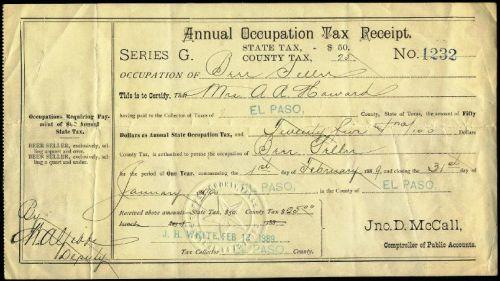 Annual Occupation Tax Receipt.
SERIES G. STATE TAX, - $ 50.
COUNTY TAX, 25. No. 1232
OCCUPATION OF Beer Seller
This is to Certify, That Mrs A. A. Howard
having paid to the Collector of Taxes of EL PASO, County, State of Texas, the amount of Fifty
Dollars as Annual State Occupation Tax, and Twenty five & no/100 Dollars
County Tax, is authorized to pursue the occupation of Beer Seller
for the period of One Year, commencing the 1st day of February 1889, and closing the 31st day of
January 1890 EL PASO, in the County of EL PASO,
Received above amounts—State Tax, $50. County Tax $25.00
J. H. WHITE, FEB 12 1889.
Tax Collector EL PASO, County.
Jno. D. McCall,
Comptroller of Public Accounts.
Occupations Requiring Payment of $50 Annual
State Tax.
BEER SELLER, exclusively, selling a quart and over.
BEER SELLER, exclusively, selling a quart and under.
By
Deputy